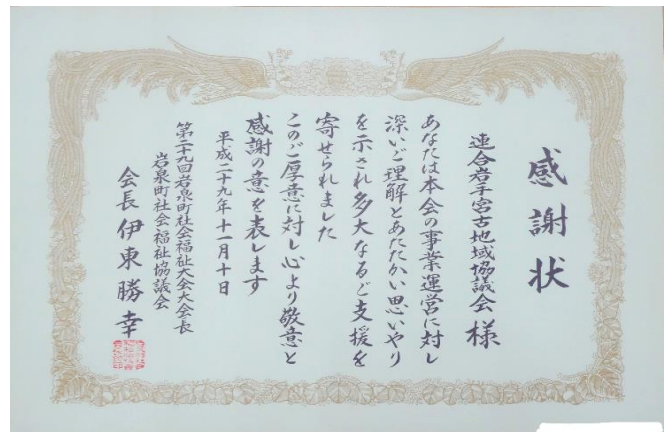 感謝状
連合岩手宮古地域協議会様
あなたは本会の事業運営に対し
深いご理解とあたたかい思いやり
を示され多大なるご支援を
寄せられました
このご厚意に対し心より敬意と
感謝の意を表します
平成二十九年十一月十日
第二十九回岩泉町社会福祉大会大会長
岩泉町社会福祉協議会
会長 伊東勝幸